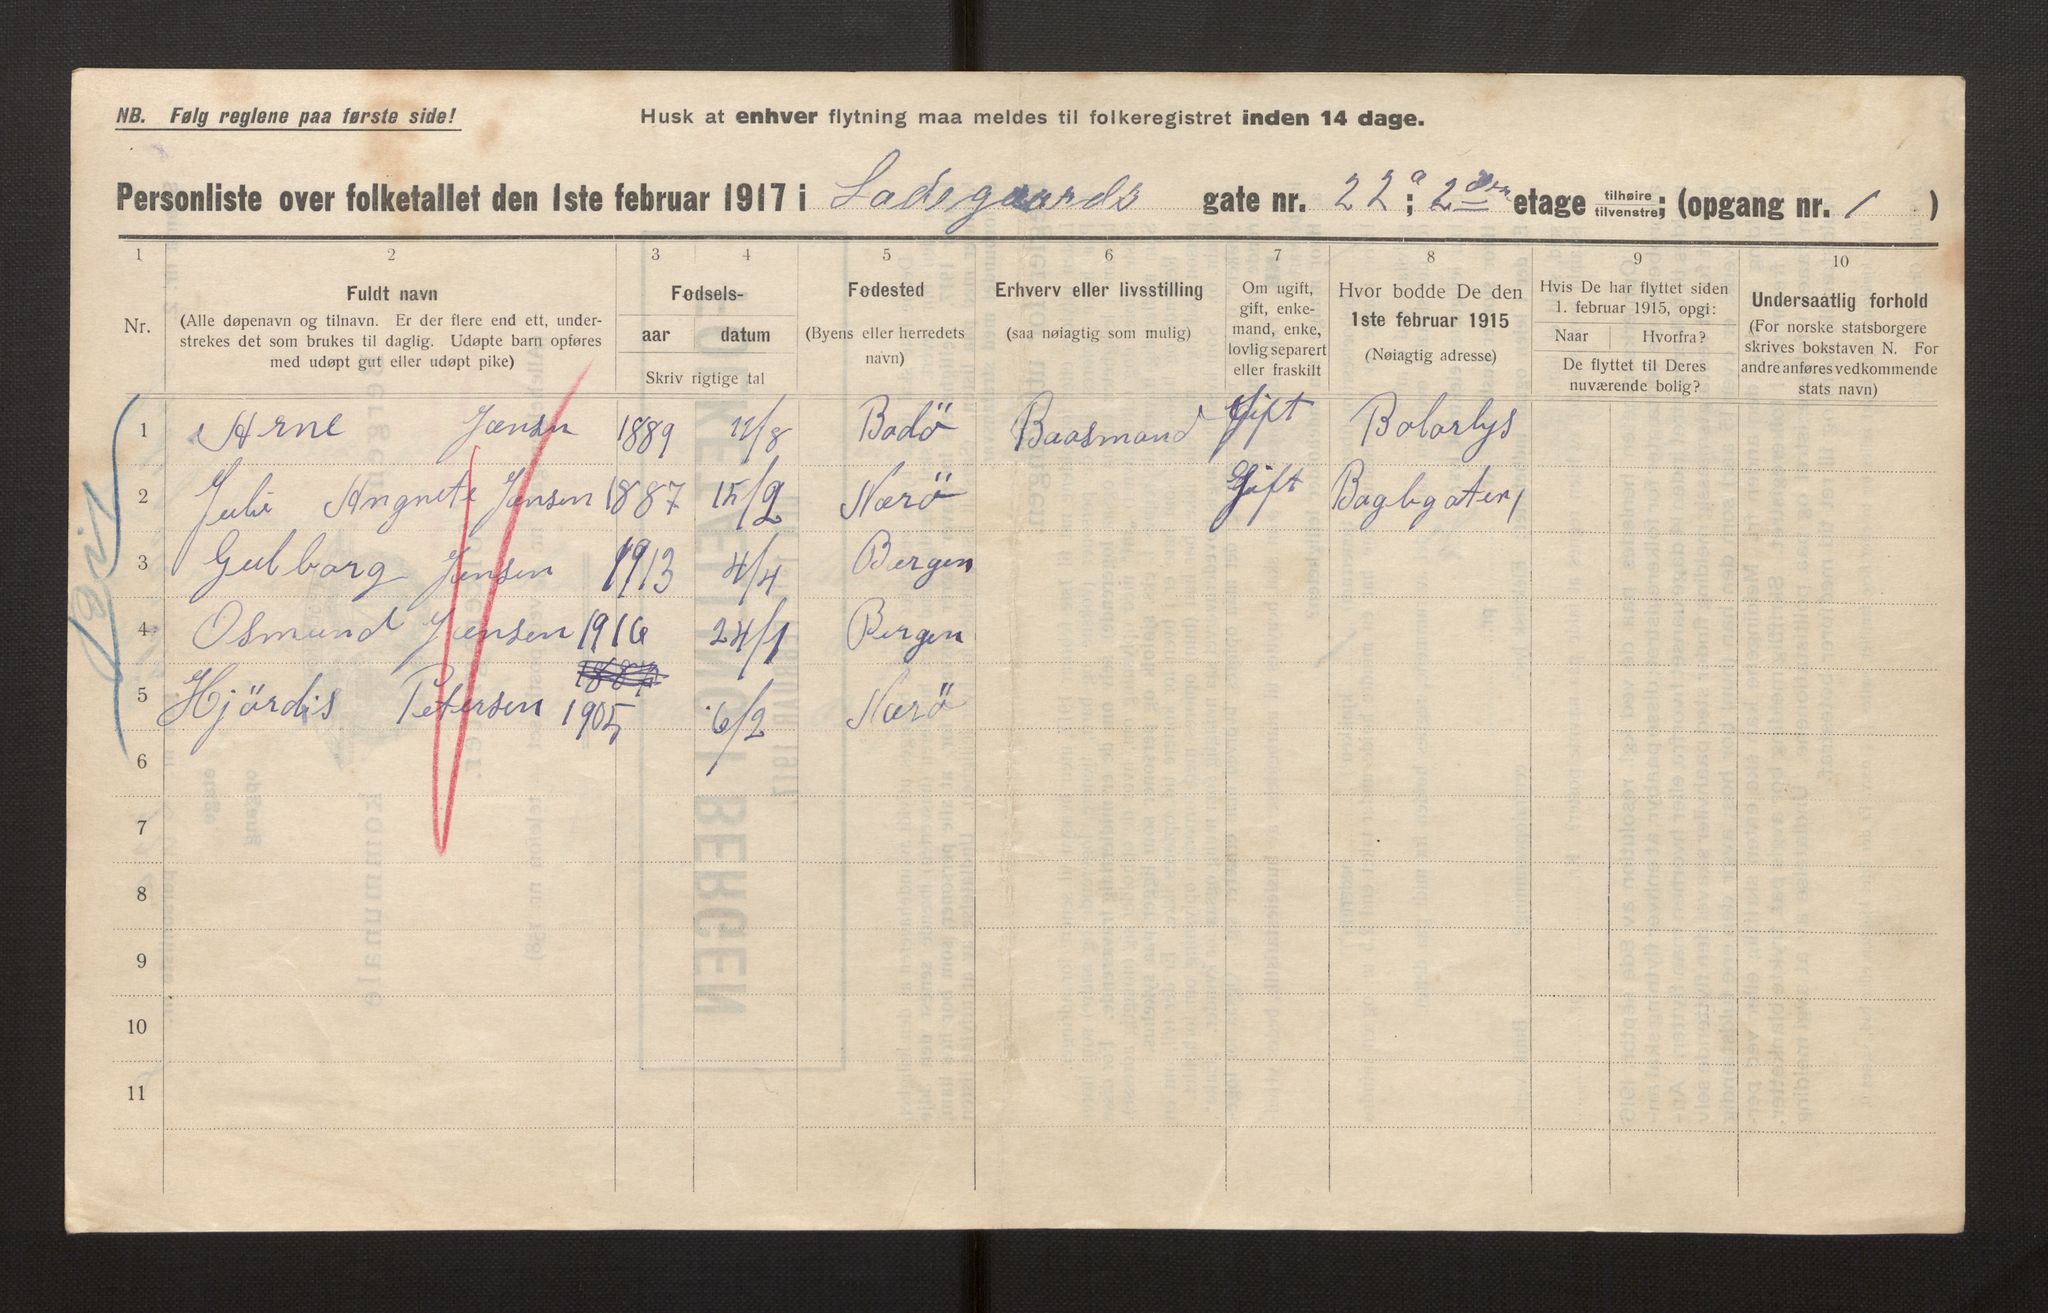 NB. Følg reglene paa første side!
Husk at enhver flytning maa meldes til folkeregistret inden 14 dage.
Personliste over folketallet den 1ste februar 1917 i Ladegaards gate nr. 22a; 2den etage tilhøire tilvenstre; (opgang nr. 1 )
1 2 3 4 5 6 7 8 9 10
Nr.
Fuldt navn
(Alle døpenavn og tilnavn. Er der flere end ett, under-
strekes det som brukes til daglig. Udøpte barn opføres
med udøpt gut eller udøpt pike)
Fødsels-
aar datum
Skriv rigtige tal
Fødested
(Byens eller herredets
navn)
Erhverv eller livsstilling
(saa nøiagtig som mulig)
Om ugift,
gift, enke-
mand, enke,
lovlig separert
eller fraskilt
Hvor bodde De den
1ste februar 1915
(Nøiagtig adresse)
Hvis De har flyttet siden
1. februar 1915, opgi:
Naar Hvorfra?
De flyttet til Deres
nuværende bolig?
Undersaatlig forhold
(For norske statsborgere
skrives bokstaven N. For
andre anføres vedkommende
stats navn)
1 Arne Jensen 1889 11/8 Bodö Baasmand Gift
2 Julie Angnete Jensen 1887 15/2 Nærö Gift
3 Gulborg Jensen 1913 4/4 Bergen
4 Osmund Jensen 1916 24/1 Bergen
5 Hjördis Petersen 1905 6/2 Nærö
6
7
8
9
10
11